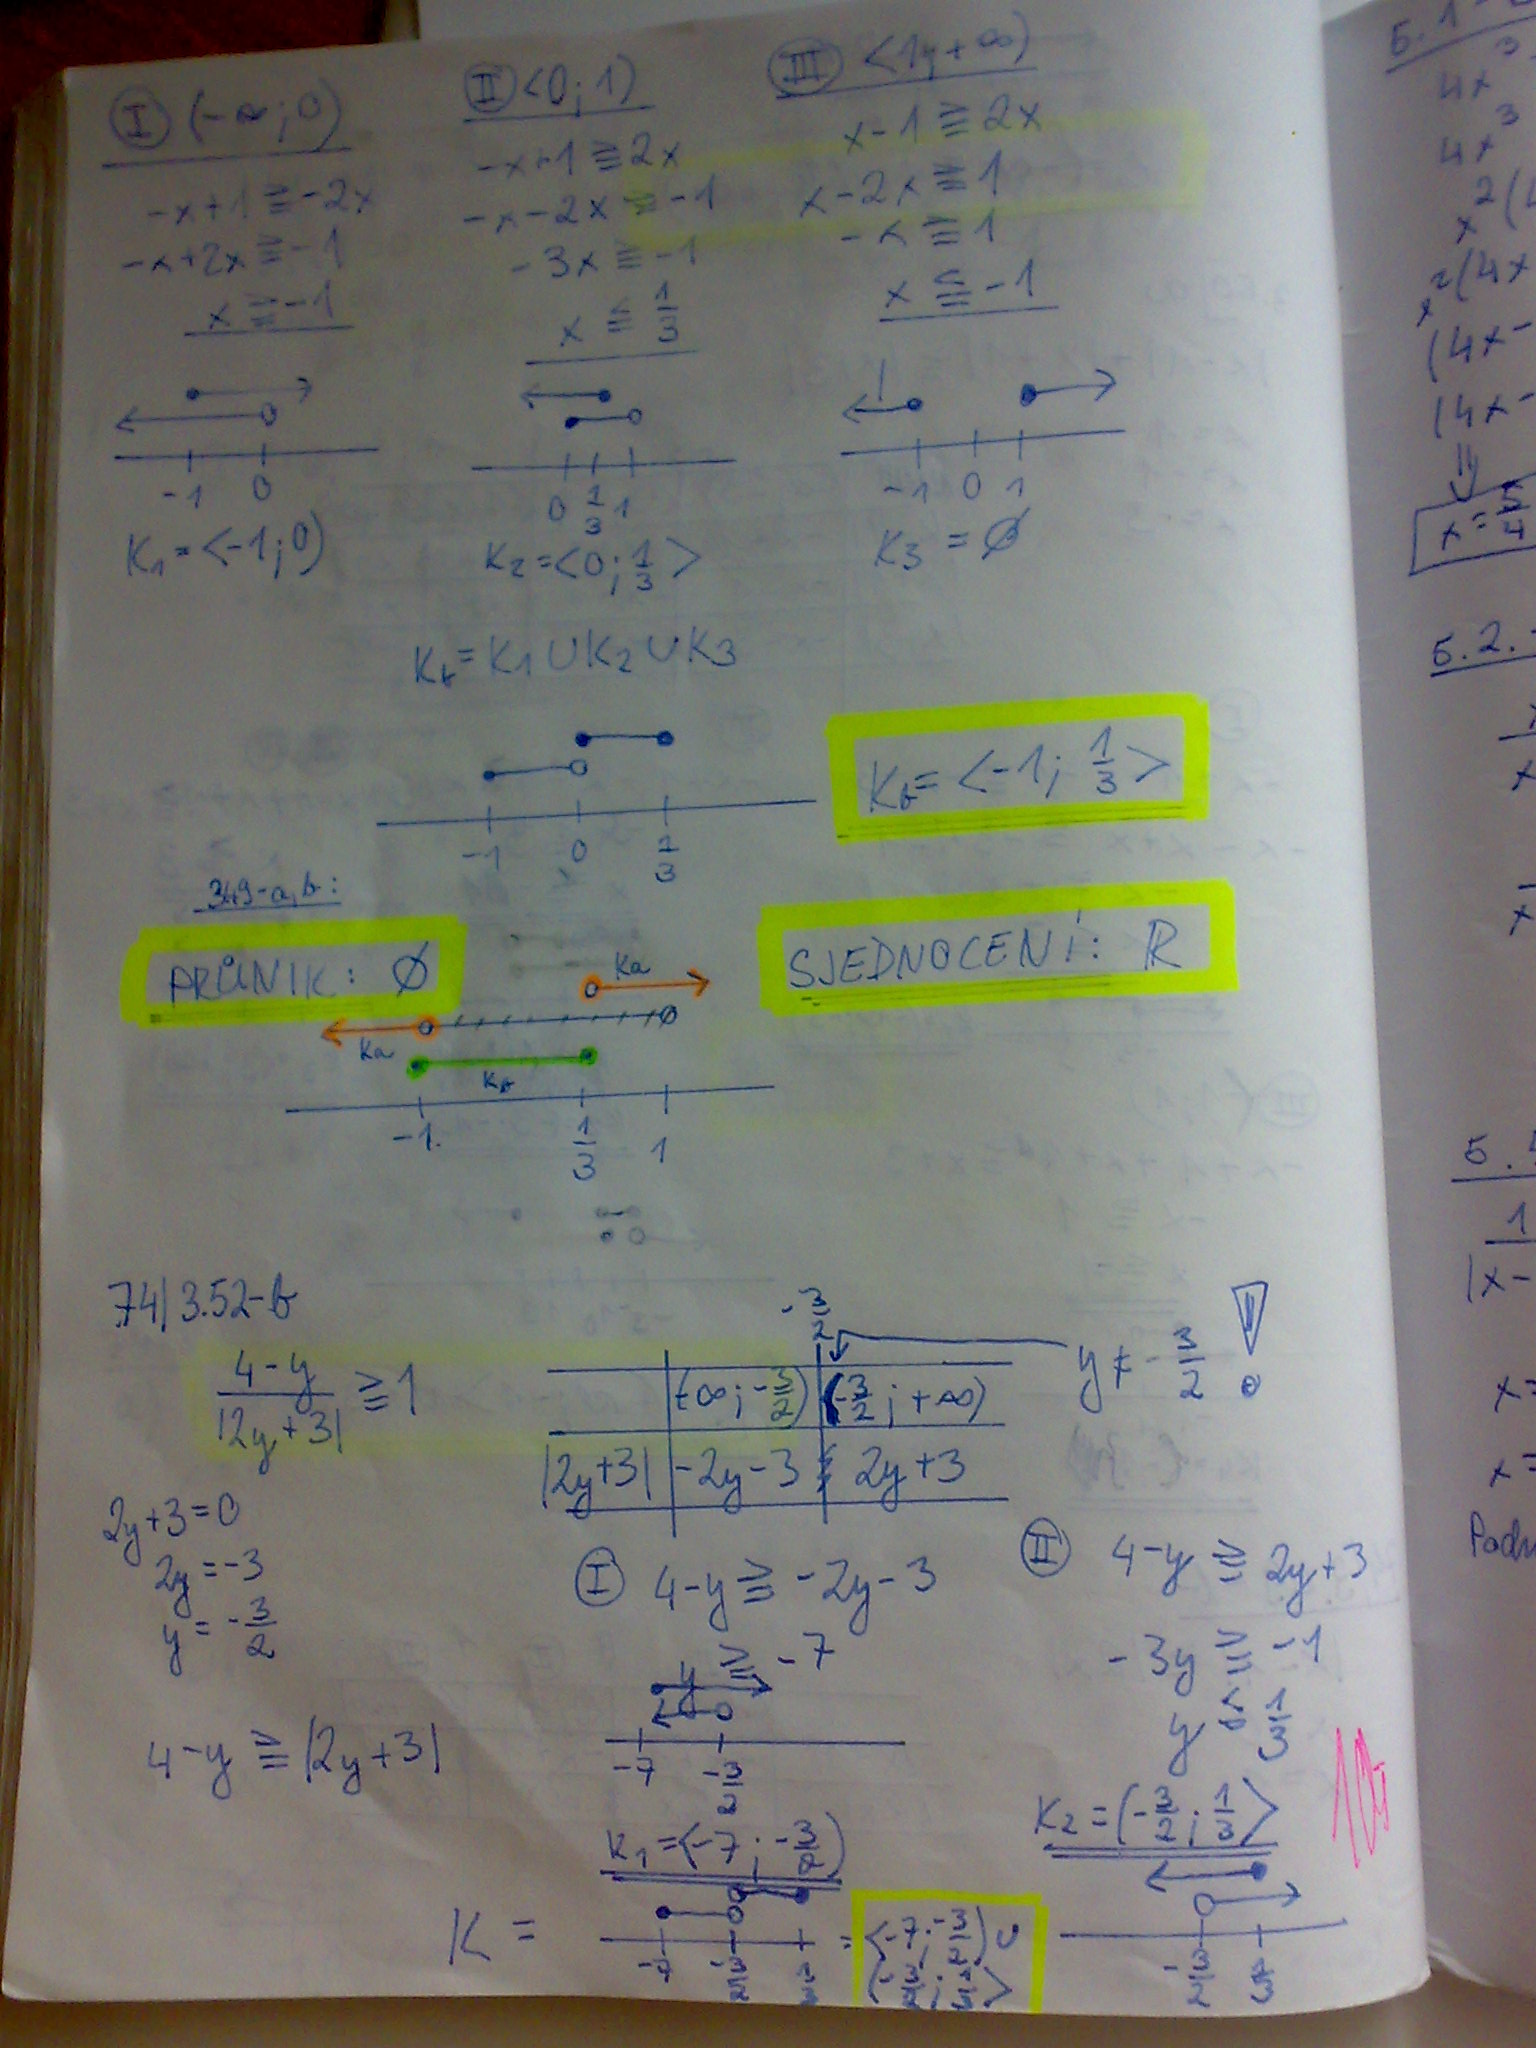 Ⅰ (-∞; 0)
-x+1 ≧ -2x
-x+2x ≧ -1
x ≧ -1
-1 0
K1 = <-1; 0)
Ⅱ <0; 1)
-x+1 ≧ 2x
-x-2x ≧ -1
-3x ≧ -1
x ≦ 1/3
0 1/3 1
K2 = <0; 1/3>
Ⅲ <1; +∞)
x-1 ≧ 2x
x-2x ≧ 1
-x ≧ 1
x ≦ -1
-1 0 1
K3 = ∅
Kb = K1 ∪ K2 ∪ K3
-1 0 1/3
Kb = <-1; 1/3>
349-a,b:
PRŮNIK: ∅
SJEDNOCENÍ: R
Ka
Ka
Kb
-1 1/3 1
74/3.52-b
(4-y)/|2y+3| ≧ 1
2y+3=0
2y = -3
y = -3/2
4-y ≧ |2y+3|
-3/2
y ≠ -3/2 !
(-∞; -3/2) (-3/2; +∞)
|2y+3| -2y-3 2y+3
Ⅰ 4-y ≧ -2y-3
y ≧ -7
-7 -3/2
K1 = <-7; -3/2)
Ⅱ 4-y ≧ 2y+3
-3y ≧ -1
y ≦ 1/3
K2 = (-3/2; 1/3>
-3/2 1/3
K =
-7 -3/2 1/3
= <-7; -3/2) ∪
(-3/2; 1/3>
4x³
4x³
x²(4
x²(4x
(4x-
(4x-
x = 5/4
5.2.
x
x
5.
1
|x-
x=
x=